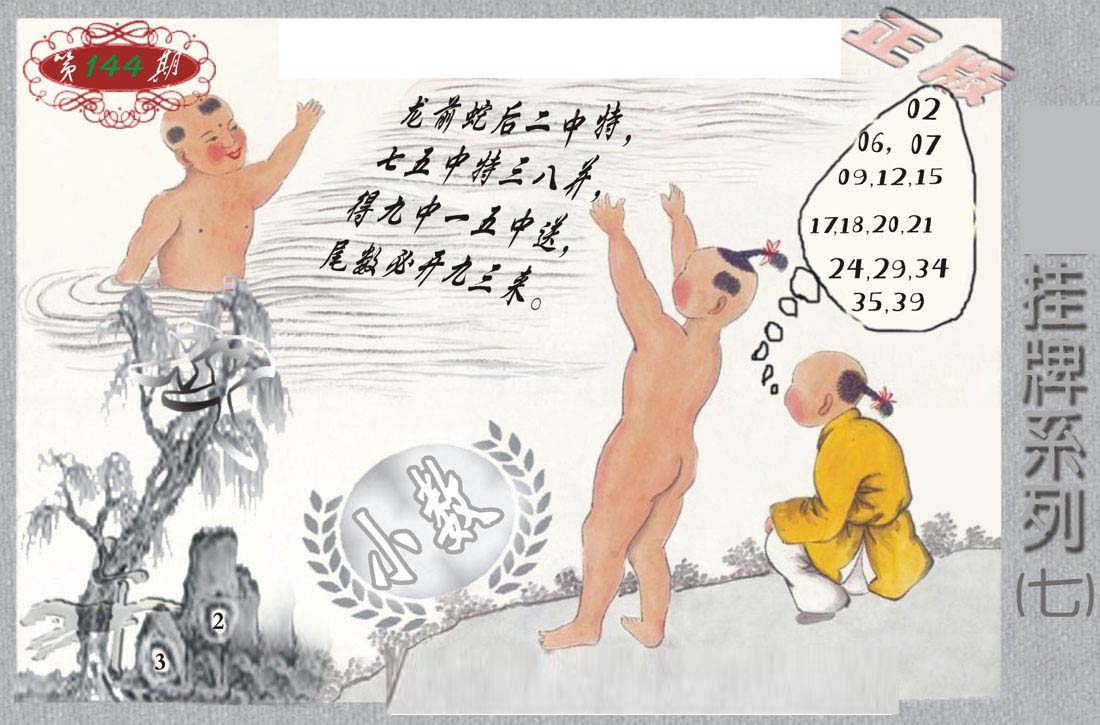 第144期
正版
龙前蛇后二中特，
七五中特三八并，
得九中一五中送，
尾数必开九三来。
02
06, 07
09,12,15
17,18,20,21
24,29,34
35,39
挂牌系列(七)
小数
2
3